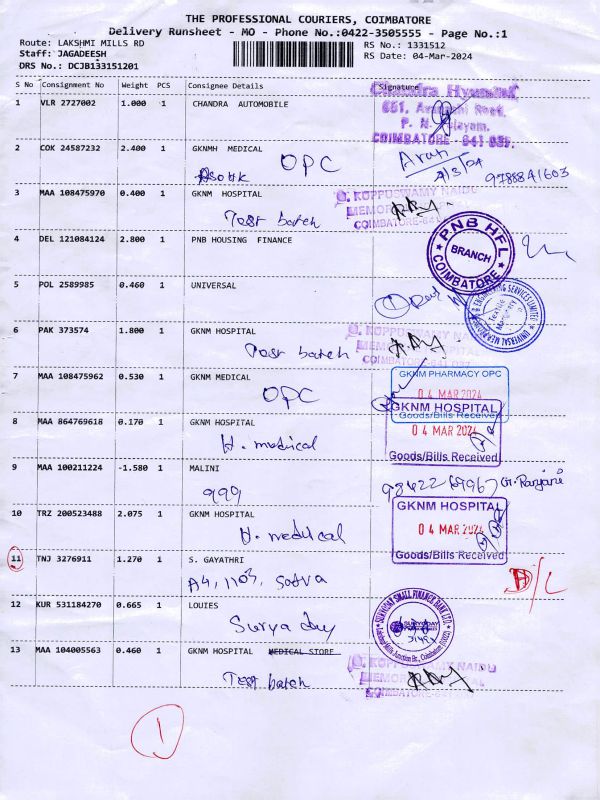 THE PROFESSIONAL COURIERS, COIMBATORE
Delivery Runsheet - MO - Phone No.:0422-3505555 - Page No.:1
Route: LAKSHMI MILLS RD
RS No.: 1331512
Staff: JAGADEESH
RS Date: 04-Mar-2024
DRS No.: DCJB133151201
S No Consignment No Weight PCS Consignee Details Signature
1 VLR 2727002 1.000 1 CHANDRA AUTOMOBILE
Chandra Hyundai
COIMBATORE - 641 037.
2 COK 24587232 2.400 1 GKNMH MEDICAL
OPC
9788841603
3 MAA 108475970 0.400 1 GKNM HOSPITAL
Test batch
G. KUPPUSWAMY NAIDU
MEMOR
COIMBATORE-641
4 DEL 121084124 2.800 1 PNB HOUSING FINANCE
PNB HFL
BRANCH
COIMBATORE
5 POL 2589985 0.460 1 UNIVERSAL
6 PAK 373574 1.800 1 GKNM HOSPITAL
Test batch
G. KUPPUSWAMY NAIDU
COIMBATORE-641 037
7 MAA 108475962 0.530 1 GKNM MEDICAL
OPC
GKNM PHARMACY OPC
04 MAR 2024
Goods/Bills Received
8 MAA 864769618 0.170 1 GKNM HOSPITAL
H. medical
GKNM HOSPITAL
04 MAR 2024
Goods/Bills Received
9 MAA 100211224 -1.580 1 MALINI
999
10 TRZ 200523488 2.075 1 GKNM HOSPITAL
H. medical
GKNM HOSPITAL
04 MAR 2024
Goods/Bills Received
11 TNJ 3276911 1.270 1 S. GAYATHRI
A4, 1103, Sattva
D/L
12 KUR 531184270 0.665 1 LOUIES
Surya day
13 MAA 104005563 0.460 1 GKNM HOSPITAL MEDICAL STORE
Test batch
G. KUPPUSWAMY NAIDU
MEMOR
COIMBATORE-641
1